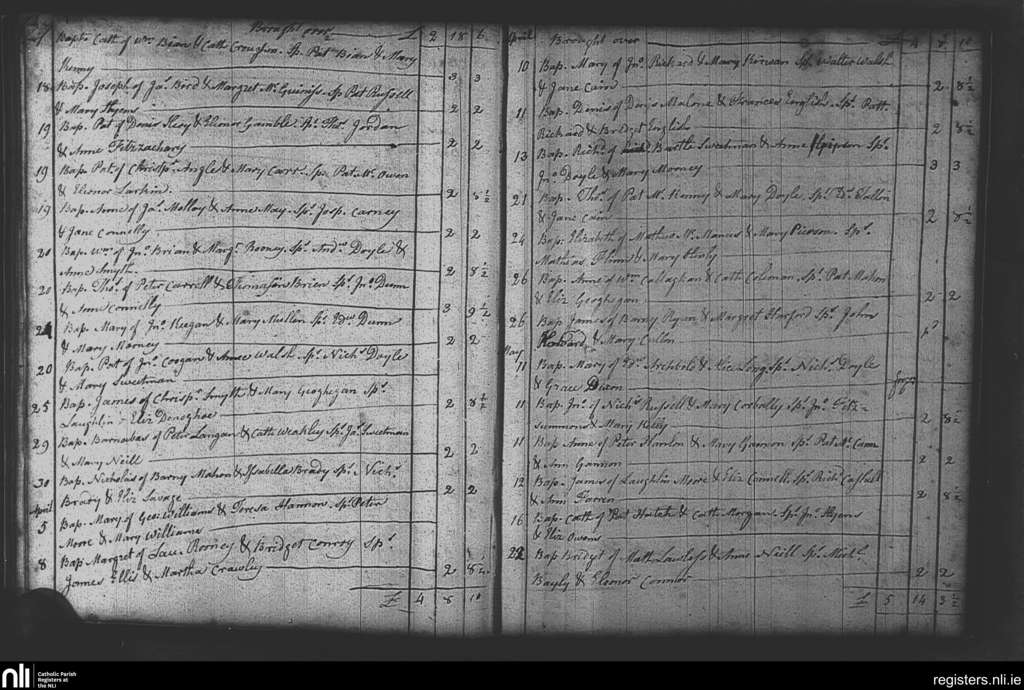 Brought over £ 2 18 6
17 Bap. Cath of Wm. Bian & Cath Sp. Pat Bian & Mary
Kenny 3 3
18 Bap. Joseph of Ja. Bird & Margret Mc.Guiniss Sp. Pat Russell
& Mary 2 2
19 Bap. Pat of Denis & Elenor Gamble Sp. Thos. Jordan
& Anne Fitzzachary 2 2
19 Bap. Pat of Christpr. Angle & Mary Carr. Sp. Pat. Mc. Owen
& Elenor Larkin 2 8½
19 Bap. Anne of Ja. Molloy & Anne May. Sp. Josp. Carney
& Jane Connelly 2 2
20 Bap. Wm. of Jno. Brian & Margt. Rooney. Sp. Andw. Doyle &
Anne Smyth 2 8½
20 Bap. Thos. of Peter Carroll & Thomasin Brien Sp. Jno. Dunn
& Ann Connelly 3 9½
24 Bap. Mary of Jno. Keegan & Mary Mullen Sp. Edwd. Dunn
& Mary Morney 2 2
20 Bap. Pat of Jno. Coogan & Anne Walsh Sp. Nichs. Doyle
& Mary Sweetman
25 Bap. James of Chrisp. Smyth & Mary Geoghegan Sp.
Laughlin & Eliz. Donoghoe 2 8½
29 Bap. Barnabas of Peter Langan & Cath Weakley Sp. Ja. Sweetman
& Mary Neill 2 2
30 Bap. Nicholas of Barny Mahon & Isabella Brady Sp. Nichs.
Brady & Eliz Savage 2 2
April
5 Bap. Mary of Geo. Williams & Teresa Hannon Sp. Peter
Moore & Mary Williams
8 Bap. Margret of Laue. Rooney & Bridget Conroy Sp.
James Ellis & Martha Crawley 2 8½
£ 4 8 10
April Brought over £ 4 8 10
10 Bap. Mary of Jno. Rickard & Mary Kinsan Sp. Walter Walsh
& Jane Cain 2 8½
11 Bap. Denis of Denis Malone & Frances English. Sp. Patt
Rickard & Bridget English 2 8½
13 Bap. Richd. of Bartle Sweetman & Anne Sp.
Jno. Doyle & Mary Morney 3 3
21 Bap. Thos. of Pat Mc. Kenny & Mary Doyle Sp.
& Jane Cain 2 8½
24 Bap. Elizabeth of Mathew Mc. Manus & Mary Pierson. Sp.
Mathias & Mary
26 Bap. Anne of Wm. Callaghan & Cath Coleman Sp. Pat Mahon
& Eliz Geoghegan 2 2
26 Bap. James of Barny Ryan & Margret Harford Sp. John
Howard & Mary Cullen
May
11 Bap. Mary of Archbold & Long Sp. Nichs. Doyle
& Grace Dixon
11 Bap. Jno. of Nichs. Russell & Mary Connolly Sp. Jno. Fitz-
Simmons & Mary Kelly 2 8½
11 Bap. Anne of Peter Hanlon & Mary Gannon Sp. Pat Mc. Cann
& Ann Gannon 2 2
12 Bap. James of Laughlin Moore & Eliz Connell Sp. Richd.
& Ann 2 8½
16 Bap. Cath of Pat & Cath Morgan Sp. Jno.
& Eliz Owens
22 Bap. Bridget of Matt Lawless & Anne Neill Sp. Michl.
Bayly & Elenor Connor 2 2
£ 5 14 3½
nli
Catholic Parish
Registers at
the NLI
registers.nli.ie